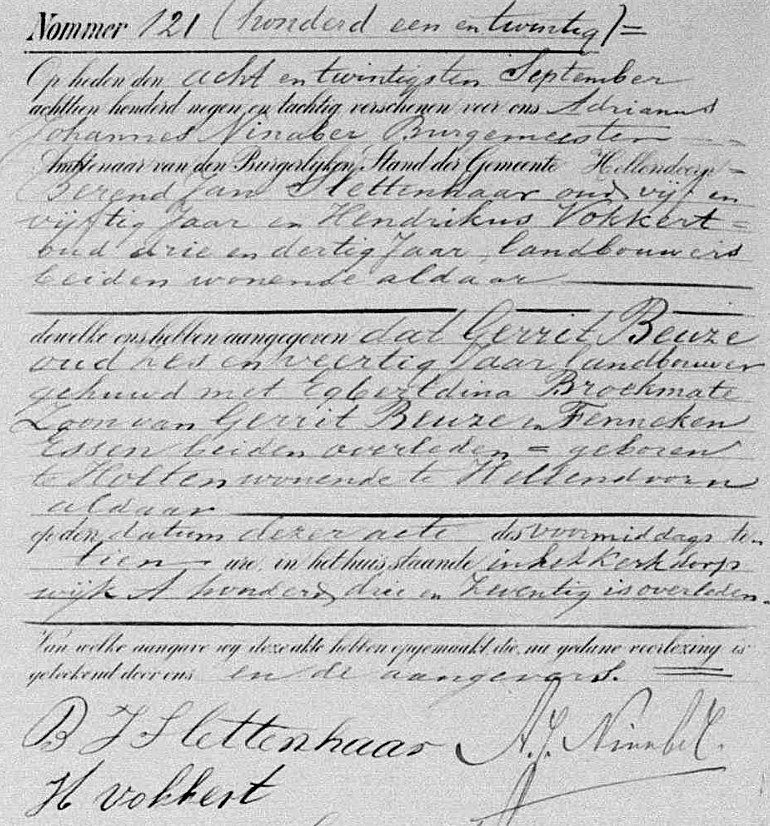 Nommer 121 (honderd een en twintig) =
Op heden den acht en twintigsten September
achttien honderd negen en tachtig verschenen voor ons Adrianus
Johannes Ninaber Burgemeester
Ambtenaar van den Burgerlijken Stand der Gemeente Hellendoorn
Berend Jan Slettenhaar oud vijf en
vijftig Jaar en Hendrikus Vokkert =
oud drie en dertig Jaar, landbouwers
beiden wonende aldaar
dewelke ons hebben aangegeven dat Gerrit Beuze
oud zes en veertig Jaar landbouwer
gehuwd met Egbertdina Broekmate
Zoon van Gerrit Beuze en Fenneken
Essen beiden overleden = geboren
te Holten wonende te Hellendoorn
aldaar
op den datum dezer acte des voormiddags te
tien ure, in het huis staande in het Kerkdorp
wijk A honderd drie en Zeventig is overleden.
Van welke aangave wy deze akte hebben opgemaakt die, na gedane voorlezing is
geteekend door ons en de aangevers.
B J Slettenhaar A. J. Ninaber.
H Vokkert